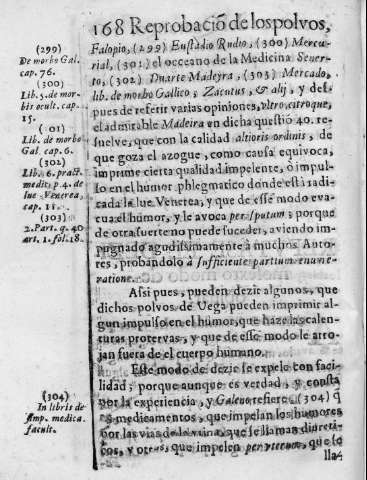 168 Reprobaciō de los polvos,
Falopio, (299) Eustadio Rudio, (300) Mercu-
rial, (301) el occeano de la Medicina Sener-
to, (302) Duarte Madeyra, (303) Mercado,
lib. de morbo Gallico, Zacutus, & alij, y des-
pues de referir varias opiniones, vltro, citroque,
el admirable Madeira en dicha questiō 40. re-
suelve, que con la calidad altioris ordinis, de
que goza el azogue, como causa equivoca,
imprime cierta qualidad impelente, ò impul-
so en el humor phlegmatico donde està radi-
cada la lue Venerea, y que de esse modo eva-
cua el humor, y le avoca per sputum; porque
de otra suerte no puede suceder, aviendo im-
pugnado agudissimamente à muchos Auto-
res, probandolo à sufficiente partium enume-
ratione.
Assi pues, pueden dezir algunos, que
dichos polvos de Vega pueden imprimir al-
gun impulso en el humor, que haze las calen-
turas protervas, y que de esse modo le arro-
jan fuera de el cuerpo humano.
Este modo de dezir se expele con faci-
lidad; porque aunque es verdad, y consta
por la experiencia, y Galeno refiere (304) q̄
ay medicamentos, que impelan los humores
por las vias de la vrina, que se llaman diureti-
cos, y otros, que impelen per vterum, que se
lla-
(299)
De morbo Gal.
cap. 76.
(300)
Lib. 5. de mor-
bis ocult. cap.
15.
(301)
Lib. de morbo
Gal. cap. 6.
(302)
Lib. 6. pract.
medit. p. 4. de
lue Venerea,
cap. 11.
(303)
2. Part. q. 40
art. 1. fol. 18.
(304)
In libris de
simp. medica.
facult.